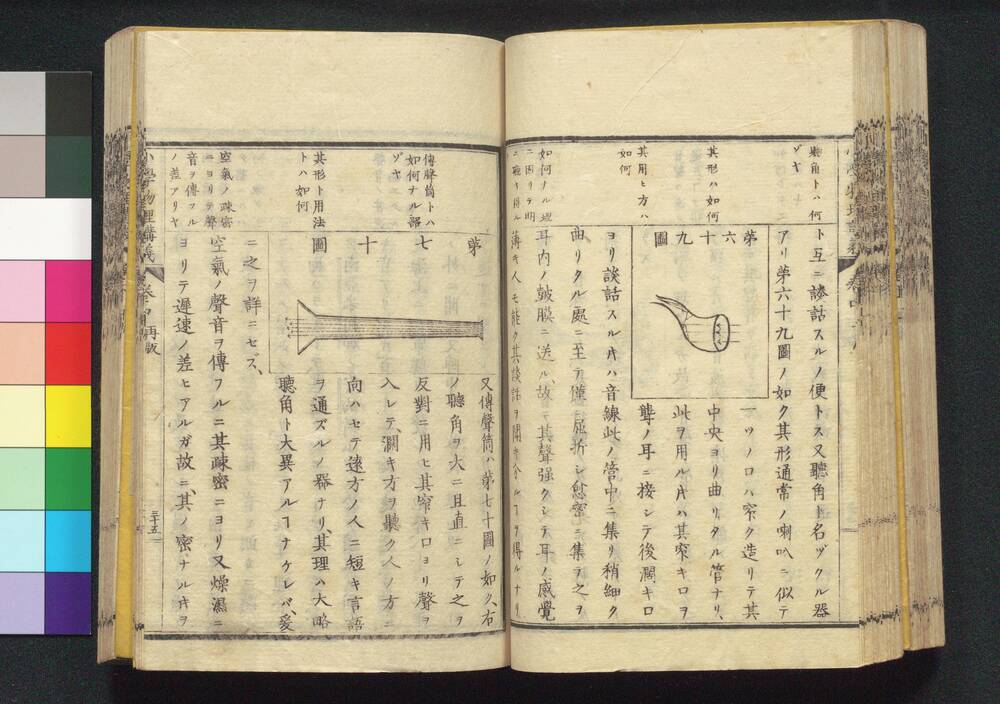 聽角トハ何
ゾヤ
其形ハ如何
其用ヒ方ハ
如何
如何ナル理
ニ因リテ明
ニ聽キ得ル
ト互ニ談話スルノ便トス又聽角ト名ヅクル器
アリ第六十九圖ノ如ク其形通常ノ喇叭ニ似テ
第六十九圖
一ツノ口ハ窄ク造リテ其
中央ヨリ曲リタル管ナリ、
此ヲ用ルキハ其窄キ口ヲ
聾ノ耳ニ接シテ後濶キ口
ヨリ談話スルキハ音線此ノ管中ニ集リ稍細ク
曲リタル處ニ至ヲ僅ニ屈折シ愈密ニ集ヲ之ヲ
耳内ノ皷膜ニ送ル、故ニ其聲强クシテ耳ノ感覺
薄キ人モ能ク其談話ヲ聞キ分ルヿヲ得ルナリ、
傳聲筒トハ
如何ナル器
ゾヤ
其形ト用法
トハ如何
空氣ノ疎密
ニヨリテ聲
音ヲ傳フル
ノ差アリヤ
第七十圖
又傳聲筒ハ第七十圖ノ如ク、右
ノ聽角ヲ大ニ且直ニシテ之ヲ
反對ニ用ヒ其窄キ口ヨリ聲ヲ
入レテ、濶キ方ヲ聽ク人ノ方ニ
向ハセテ遠方ノ人ニ短キ言語
ヲ通ズルノ器ナリ、其理ハ大略
聽角ト大異アルヿナケレバ、爰
ニ之ヲ詳ニセズ、
空氣ノ聲音ヲ傳フルニ其疎密ニヨリ又燥濕ニ
ヨリテ遲速ノ差ヒアルガ故ニ、其ノ密ナルキヲ
小學物理講義
卷之四
再版
三十五